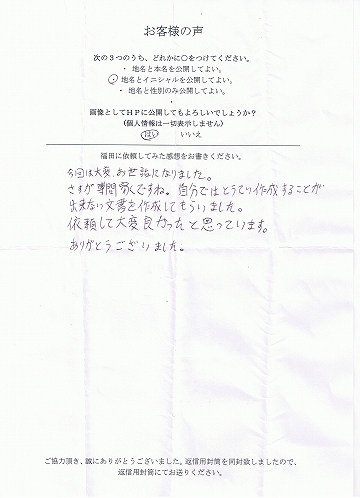 お客様の声
次の３つのうち、どれかに〇をつけてください。
・ 地名と本名を公開してよい。
・ 地名とイニシャルを公開してよい。
・ 地名と性別のみ公開してよい。
・
画像としてＨＰに公開してもよろしいでしょうか？
（個人情報は一切表示しません）
はい　いいえ
福田に依頼してみた感想をお書きください。
今回は大変、お世話になりました。
さすが専門家ですね。自分ではとうてい作成することが
出来ない文書を作成してもらいました。
依頼して大変良かったと思っています。
ありがとうございました。
ご協力頂き、誠にありがとうございました。返信用封筒を同封致しましたので、
返信用封筒にてお送りください。